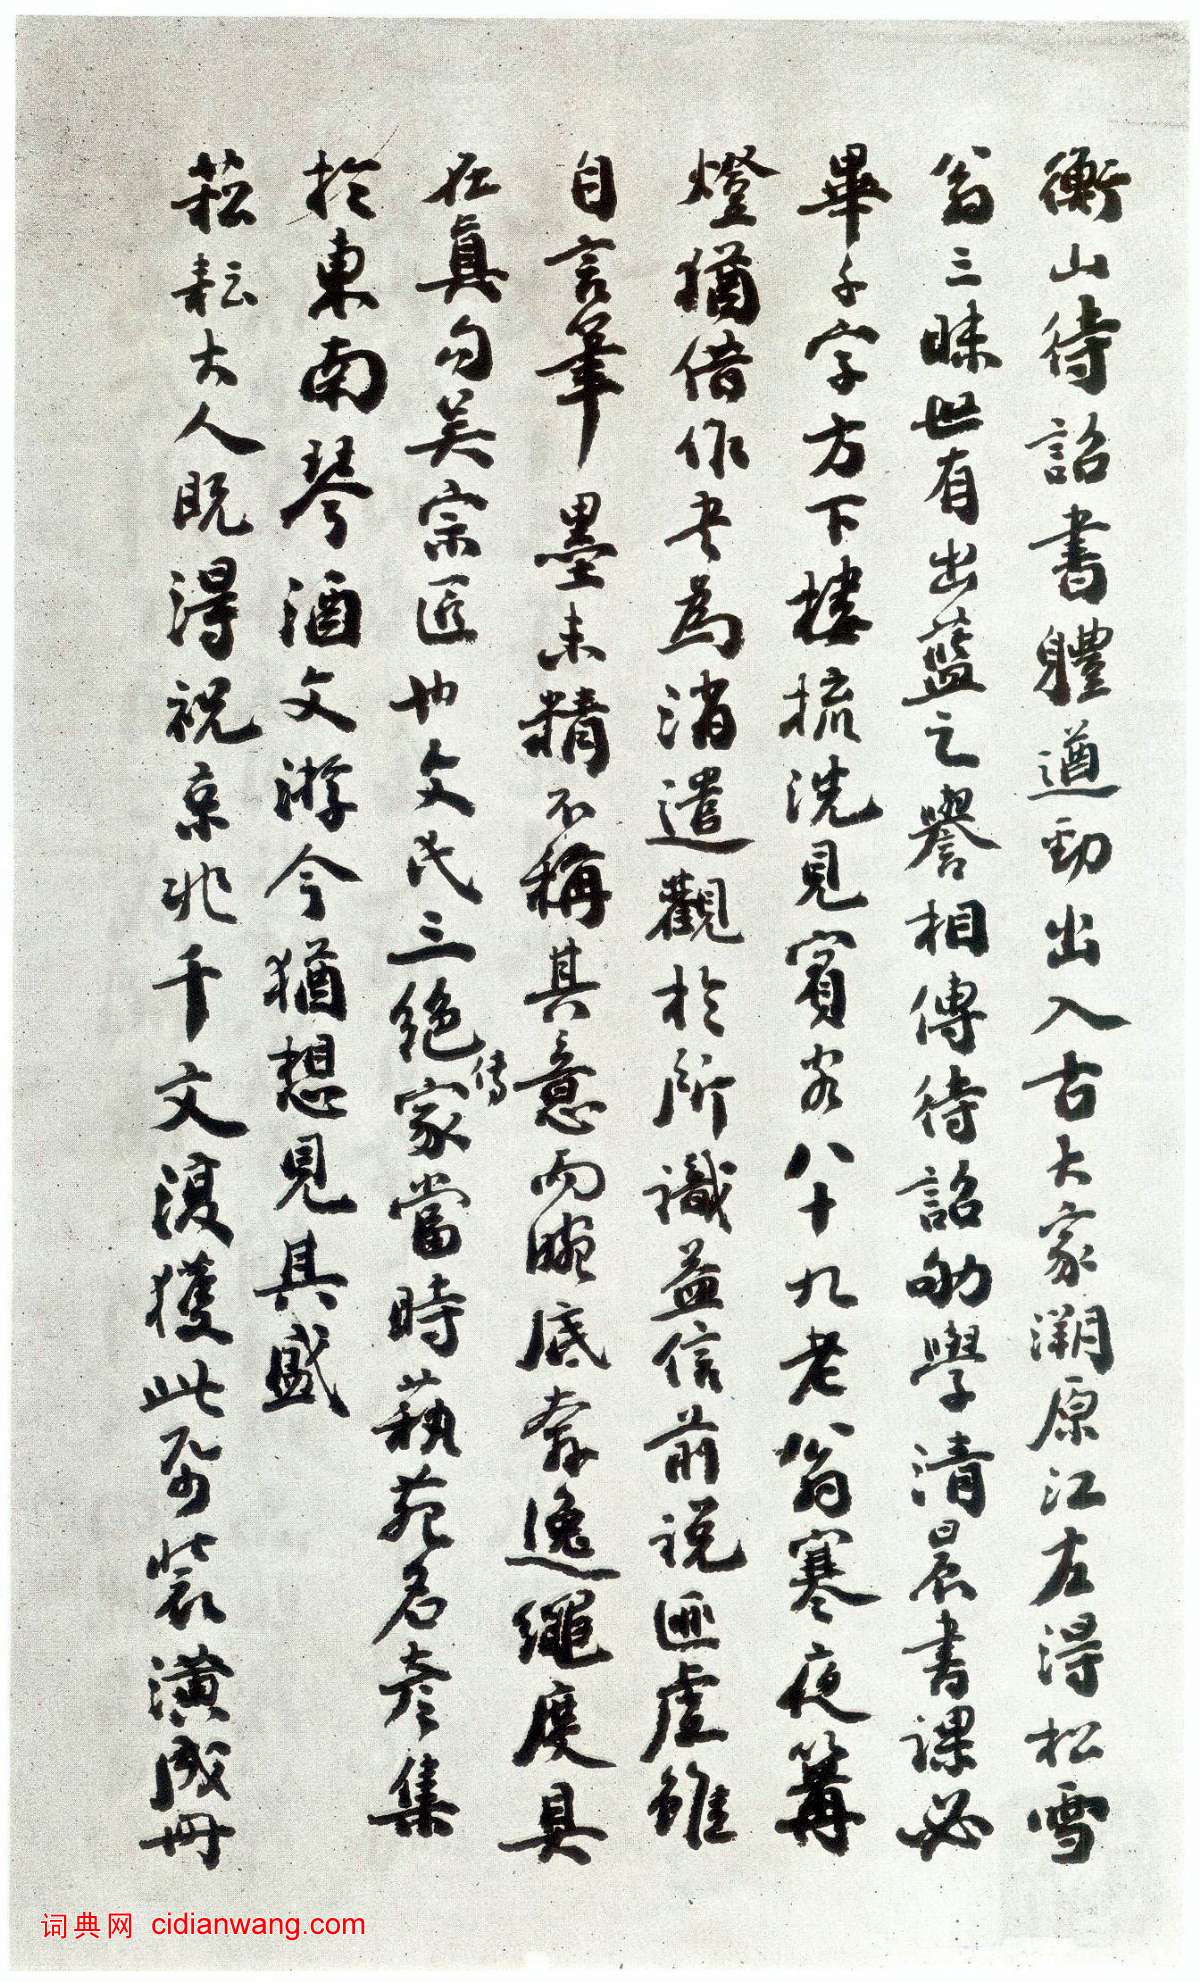 衡山待詔書體遒勁出入古大家溯原江左得松雪
翁三昧世有出藍之譽相傳待詔劬學清晨書課必
畢千字方下樓梳洗見賓客八十九老翁寒夜篝
燈猶借作書為消遣觀於所識益信前說匪虛雖
自言筆墨未精不稱其意而腕底奔逸繩度具
在真勾吴宗匠也文氏三絕家當時蓺苑名彥集
傳
於東南琴酒文游今猶想見其盛
菘耘大人既得祝京兆千文復獲此帋裝潢成冊
词典网 cidianwang.com